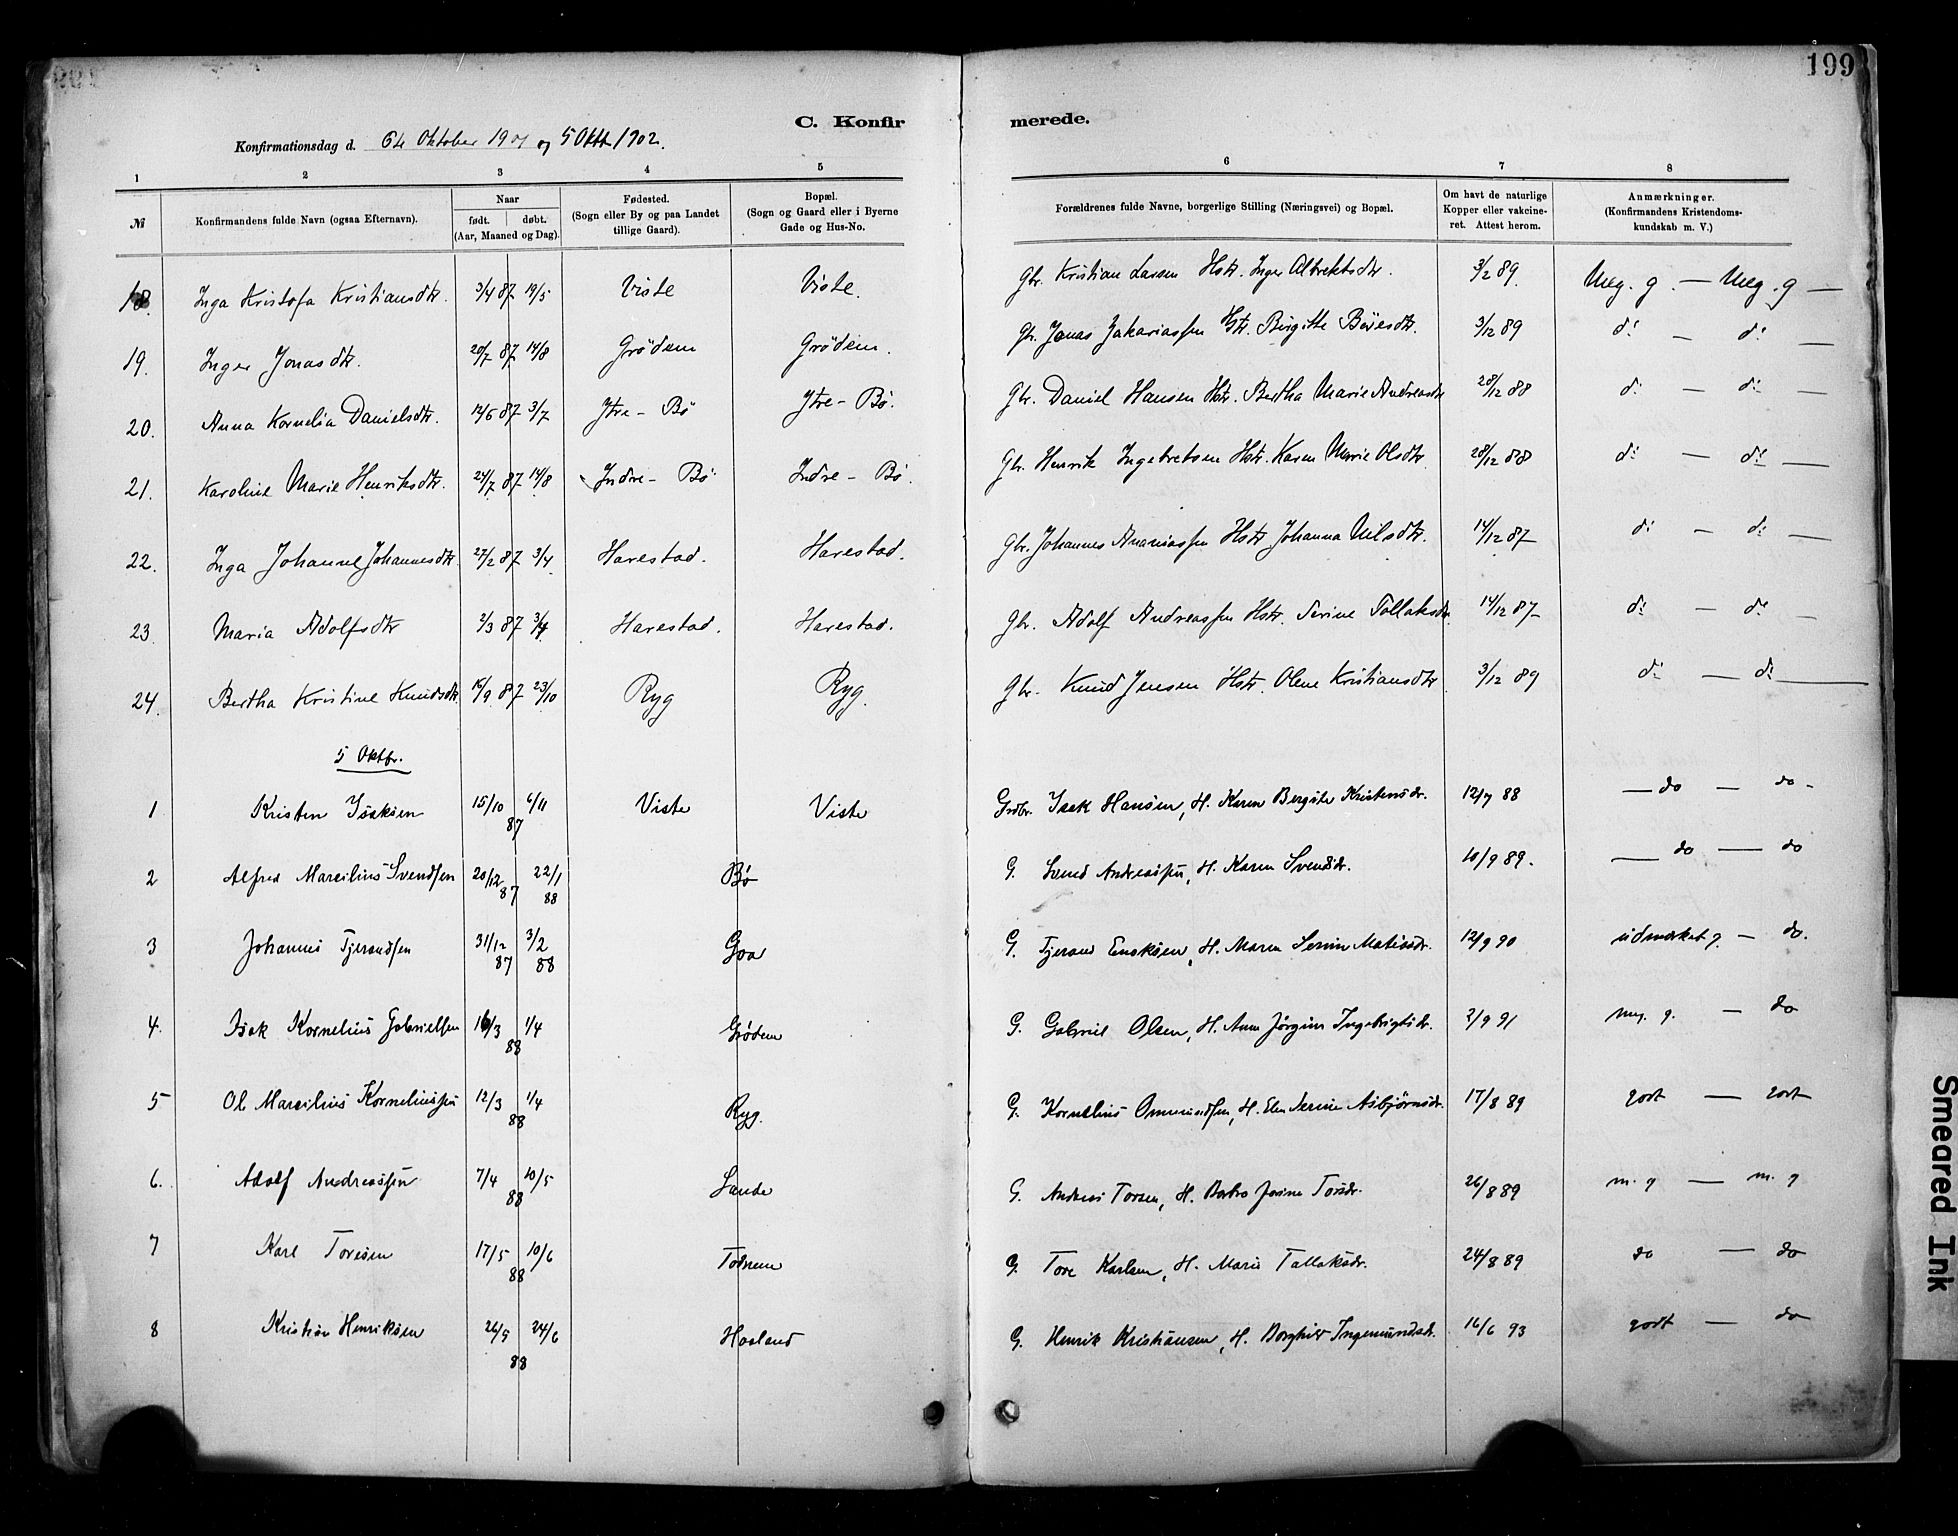 199
C. Konfirmerede.
Konfirmationsdag d. 6te Oktober 1901 og 5 Oktb 1902.
1 2 3 4 5 6 7 8
№ Konfirmandens fulde Navn (ogsaa Efternavn). Naar født. døbt. (Aar, Maaned og Dag). Fødested. (Sogn eller By og paa Landet tillige Gaard). Bopæl. (Sogn og Gaard eller i Byerne Gade og Hus-No. Forældrenes fulde Navne, borgerlige Stilling (Næringsvei) og Bopæl. Om havt de naturlige Kopper eller vakcineret. Attest herom. Anmærkninger. (Konfirmandens Kristendomskundskab m. V.)
18. Inga Kristofa Kristiansdtr. 3/4 87 19/5 Viste Viste. Gbr. Kristian Larsen Hstr. Inger Albrektsdtr. 3/2 89. Meg. g. — Meg. g —
19. Inger Jonasdtr. 20/7 87 14/8 Grödem Grödem. Gbr. Jonas Zakariassen Hstr. Birgitte Böiesdtr. 3/12 89 d: — d: —
20. Anna Kornelia Danielsdtr. 12/6 87 3/7 Ytre - Bö Ytre - Bö. Gbr. Daniel Hansen Hstr. Bertha Marie Andreasdtr 28/12 88 d: — d: —
21. Karoline Marie Henriksdtr. 24/7 87 14/8 Indre - Bö Indre - Bö. Gbr. Henrik Ingebretsen Hstr. Karen Marie Olsdtr 28/12 88 d: — d: —
22. Inga Johanne Johannesdtr. 27/2 87 3/4 Harestad. Harestad. Gbr. Johannes Ananiassen Hstr Johanna Nilsdtr. 14/12 87 d: — d: —
23. Maria Adolfsdtr 2/3 87 3/4 Harestad. Harestad. Gbr. Adolf Andreassen Hstr. Serine Tollaksdtr. 14/12 87 d: — d: —
24. Bertha Kristine Knudsdtr. 16/9 87 23/10 Ryg Ryg. Gbr. Knud Jensen Hstr. Olene Kristiansdtr 3/12 89 d: — d: —
5 Oktbr.
1 Kristen Isaksen 15/10 87 6/11 Viste Viste Grdbr. Isak Hansen, H. Karen Bergite Kristensdr. 12/7 88 — do — do -
2 Alfred Marsilius Svendsen 20/12 87 22/1 88 Bø G. Svend Andreassen, H. Karen Svendsdr. 10/9 89. — do — do
3 Johannes Tjerandsen 31/12 87 3/2 88 Goa G. Tjerand Enoksen, H. Maren Serine Matiasdr. 12/9 90 udmerket g. — do.
4. Isak Kornelius Gabrielsen 16/3 88 1/4 Grødem G. Gabriel Olsen, H. Anna Jørgine Ingebrigtsdr. 2/9 91 meg. g. — do
5 Ole Marsilius Korneliussen 12/3 88 1/4 Ryg. G. Kornelius Ommundsen, H. Elen Serine Asbjørnsdr. 17/8 89 godt — godt
6. Adolf Andreassen 7/4 88 10/5 Sande G. Andreas Torsen, H. Barbro Josine Torsdr. 26/8 89 m. g — m. g
7 Karl Toresen 17/5 88 10/6 Todnem G. Tore Karlsen, H. Maria Tallaksdr. 24/8 89 do — do
8 Kristian Henriksen 26/5 88 24/6 Haaland G. Henrik Kristiansen, H. Borghild Ingemundsdr. 16/6 93 godt — do
Smeared Ink